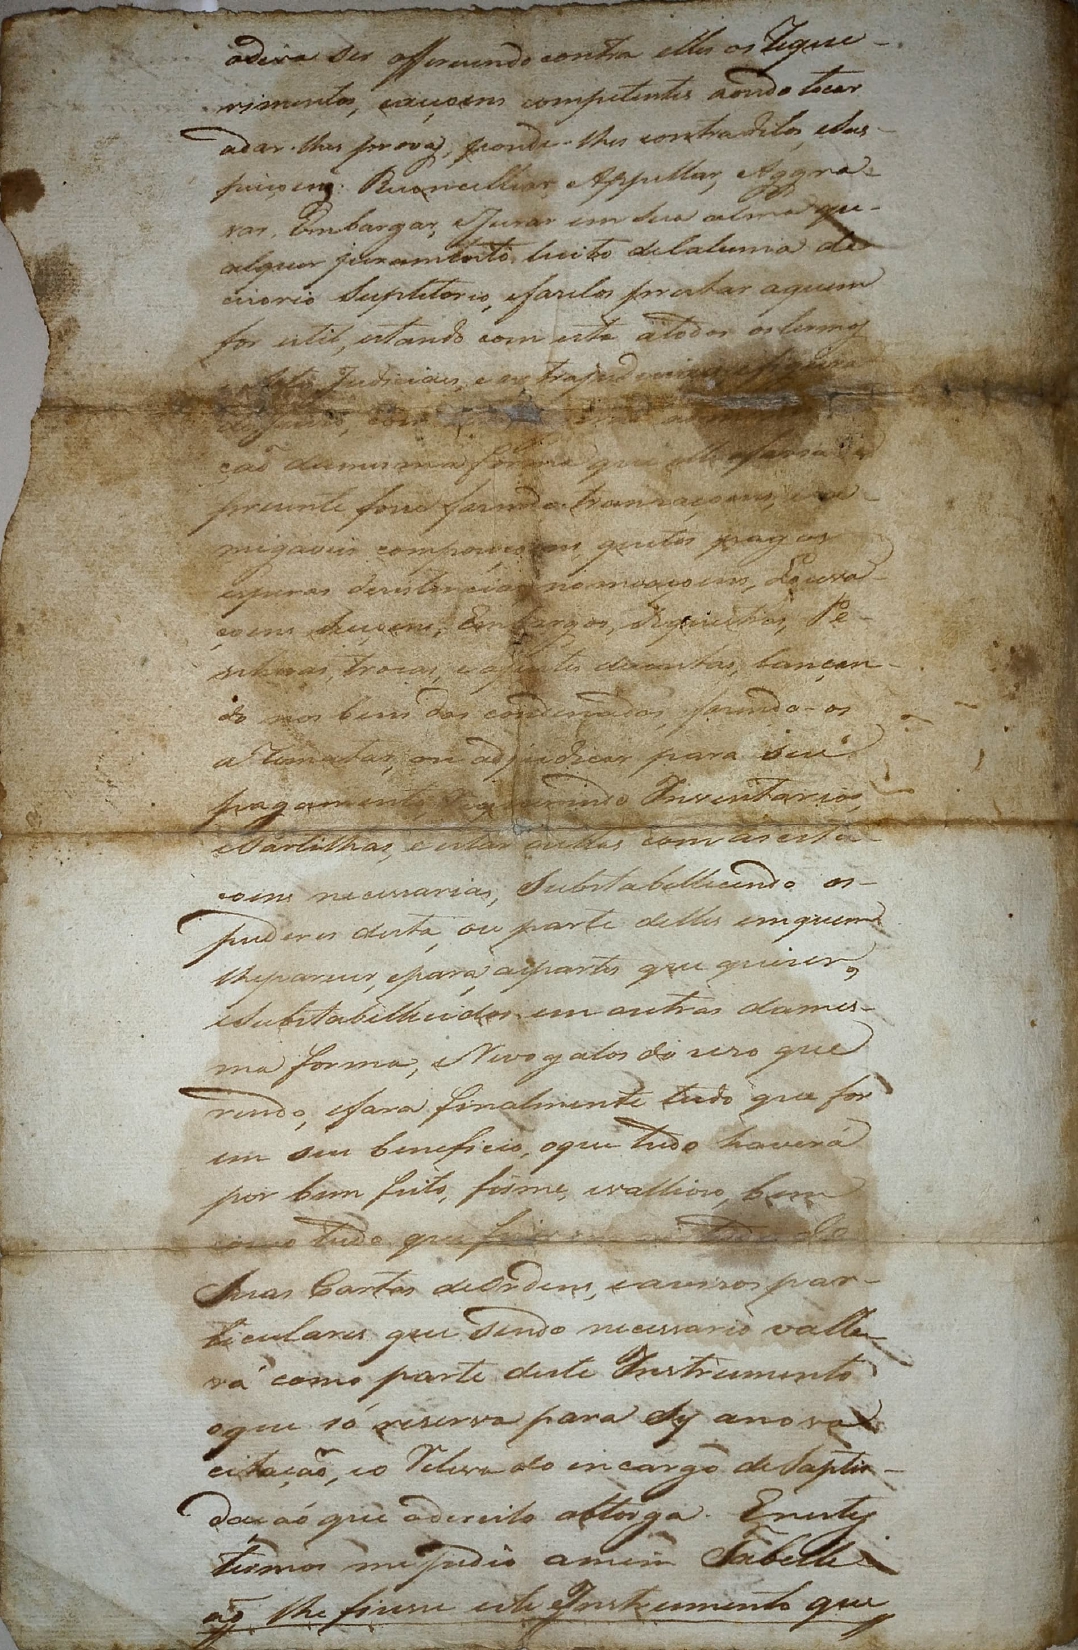 offerecendo contra elles os Reque-
rimentos, caucoens competentes aonde tocar
adar-lhes prova, pondo-lhes contraditas, e Sus-
peiçoens: Reconcelliar, Appellar, Aggra-
var, Embargar, eJurar em Sua alma que-
alquer juramento licito deCalumia de
cizorio Supletorio, efazelos prestar aquem
for util, estando com esta atodos os termos
Judiciais, e ex trajudiciais
ção damesma forma que elle ofaria se
prezente fosse fazendo tranzaçoens, e a-
migaveis compoziçoens, quitas pagas
esperas dezistencias nomeaçoens, Louva-
çoens Embargos, Sequestros, Pe-
nhoras, trocas, e ajustes decontas, lançan-
do nos bens dos condenados, fazendo-os
a Rematar, ou adjudicar para seu
pagamento, Requerendo Inventarios,
ePartilhas, e estar aellas com as cita-
coens necessarias, Substabellecendo os-
puderes desta, ou parte delles emquem
lheparecer, epara, aspartes que quizer,
eSubstabellecidos em outros dames-
ma forma, eRevogalos do sero que
rendo, efara finalmente tudo que for
em seu beneficio, oque tudo haverá
por bem feito, firme, evallioso, bem
como tudo que fizer
Suas Cartas deOrdens, eavizos par-
ticulares que sendo necessario valle-
rá como parte deste Instrumento
oque só reserva para Sy anova
citação, eo Releva do encargo deSaptis-
dacaó que odireito oitorga. Enestes
termos mepedio amim Tabelli
aõ lhe fizesse este Instrumento que